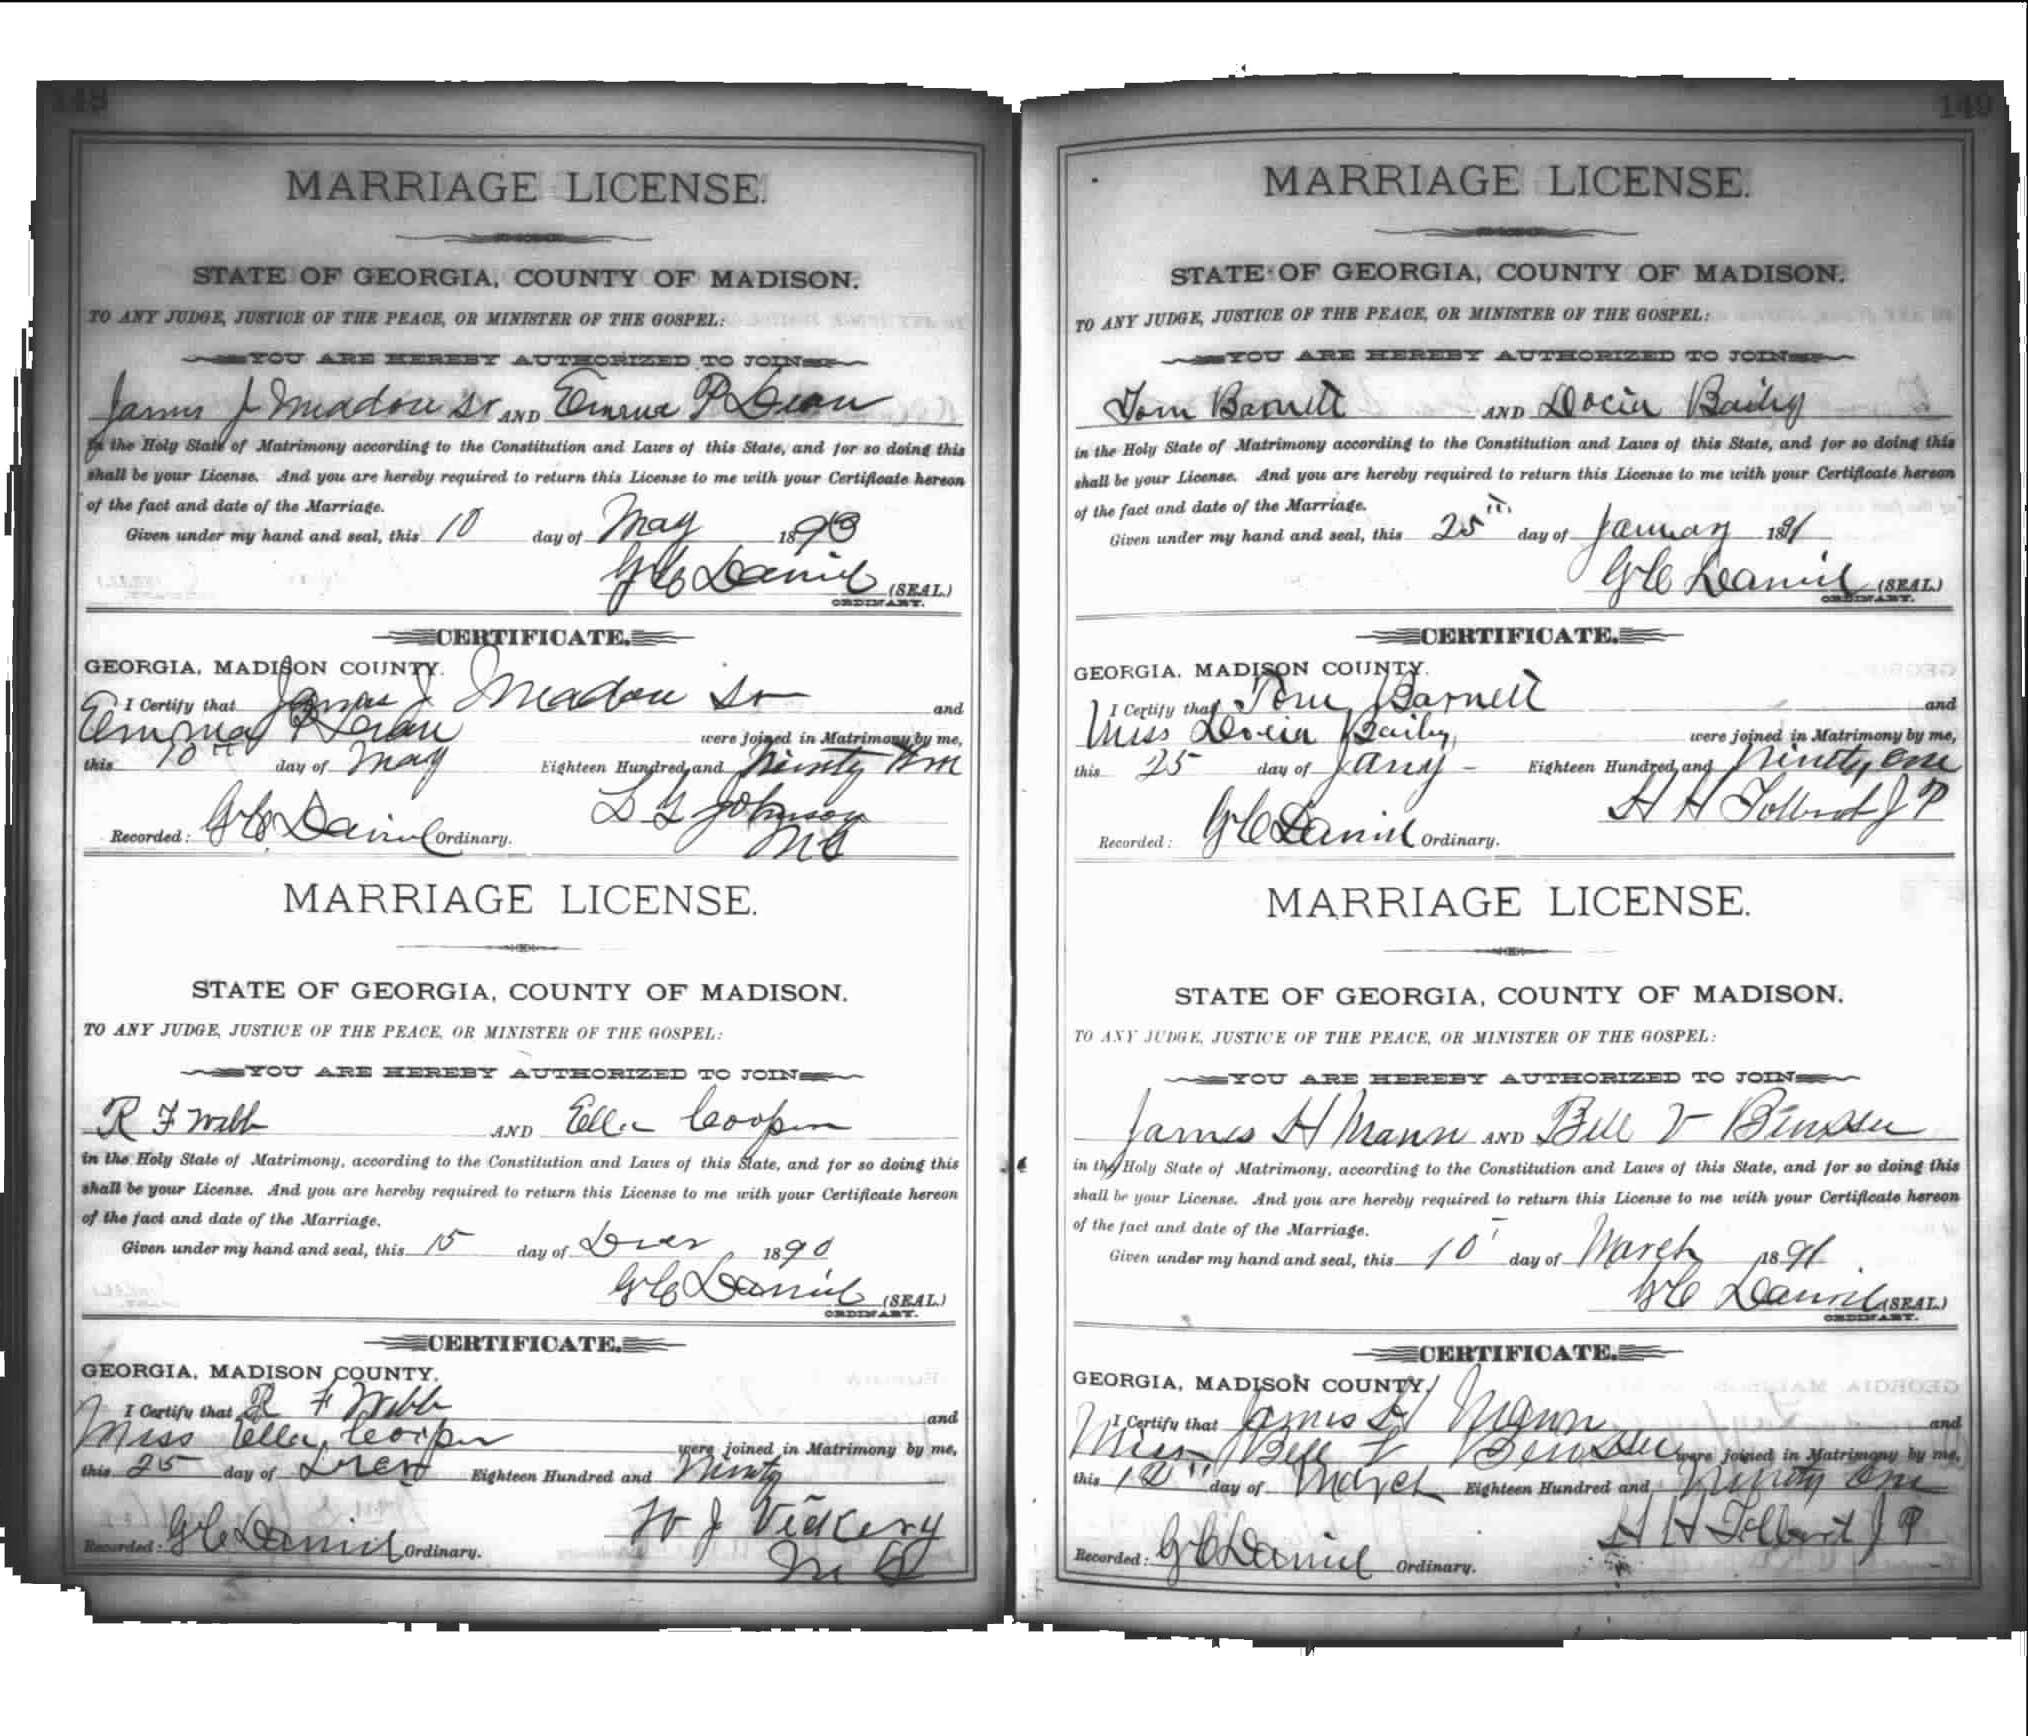 148
MARRIAGE LICENSE.
STATE OF GEORGIA, COUNTY OF MADISON.
TO ANY JUDGE, JUSTICE OF THE PEACE, OR MINISTER OF THE GOSPEL:
YOU ARE HEREBY AUTHORIZED TO JOIN
James J Meadow Sr AND Emma P Dean
in the Holy State of Matrimony according to the Constitution and Laws of this State, and for so doing this
shall be your License. And you are hereby required to return this License to me with your Certificate hereon
of the fact and date of the Marriage.
Given under my hand and seal, this 10 day of May 1893
G C Daniel (SEAL.)
ORDINARY.
CERTIFICATE.
GEORGIA, MADISON COUNTY.
I Certify that James J Meadow Sr and
Emma P Dean were joined in Matrimony by me,
this 10th day of May Eighteen Hundred and Ninty
Recorded: G C Daniel Ordinary. L G Johnson
M G
MARRIAGE LICENSE.
STATE OF GEORGIA, COUNTY OF MADISON.
TO ANY JUDGE, JUSTICE OF THE PEACE, OR MINISTER OF THE GOSPEL:
YOU ARE HEREBY AUTHORIZED TO JOIN
R F Webb AND Ella Cooper
in the Holy State of Matrimony, according to the Constitution and Laws of this State, and for so doing this
shall be your License. And you are hereby required to return this License to me with your Certificate hereon
of the fact and date of the Marriage.
Given under my hand and seal, this 15 day of 1890
G C Daniel (SEAL.)
ORDINARY.
CERTIFICATE.
GEORGIA, MADISON COUNTY.
I Certify that R F Webb and
Miss Ella Cooper were joined in Matrimony by me,
this 25 day of Eighteen Hundred and Ninty
Recorded: G C Daniel Ordinary. W J Vickery
M G
149
MARRIAGE LICENSE.
STATE OF GEORGIA, COUNTY OF MADISON.
TO ANY JUDGE, JUSTICE OF THE PEACE, OR MINISTER OF THE GOSPEL:
YOU ARE HEREBY AUTHORIZED TO JOIN
Tom Barnett AND Docia Baily
in the Holy State of Matrimony according to the Constitution and Laws of this State, and for so doing this
shall be your License. And you are hereby required to return this License to me with your Certificate hereon
of the fact and date of the Marriage.
Given under my hand and seal, this 25th day of January 1891
G C Daniel (SEAL.)
ORDINARY.
CERTIFICATE.
GEORGIA, MADISON COUNTY.
I Certify that Tom Barnett and
Miss Docia Baily were joined in Matrimony by me,
this 25 day of Jany Eighteen Hundred and Ninety One
Recorded: G C Daniel Ordinary. H H Tolbert J P
MARRIAGE LICENSE.
STATE OF GEORGIA, COUNTY OF MADISON.
TO ANY JUDGE, JUSTICE OF THE PEACE, OR MINISTER OF THE GOSPEL:
YOU ARE HEREBY AUTHORIZED TO JOIN
James H Mann AND Bell V
in the Holy State of Matrimony, according to the Constitution and Laws of this State, and for so doing this
shall be your License. And you are hereby required to return this License to me with your Certificate hereon
of the fact and date of the Marriage.
Given under my hand and seal, this 10 day of March 1891
G C Daniel (SEAL.)
ORDINARY.
CERTIFICATE.
GEORGIA, MADISON COUNTY.
I Certify that James H Mann and
Miss Bell V were joined in Matrimony by me,
this 12th day of March Eighteen Hundred and Ninety One
Recorded: G C Daniel Ordinary. H H Tolbert J P